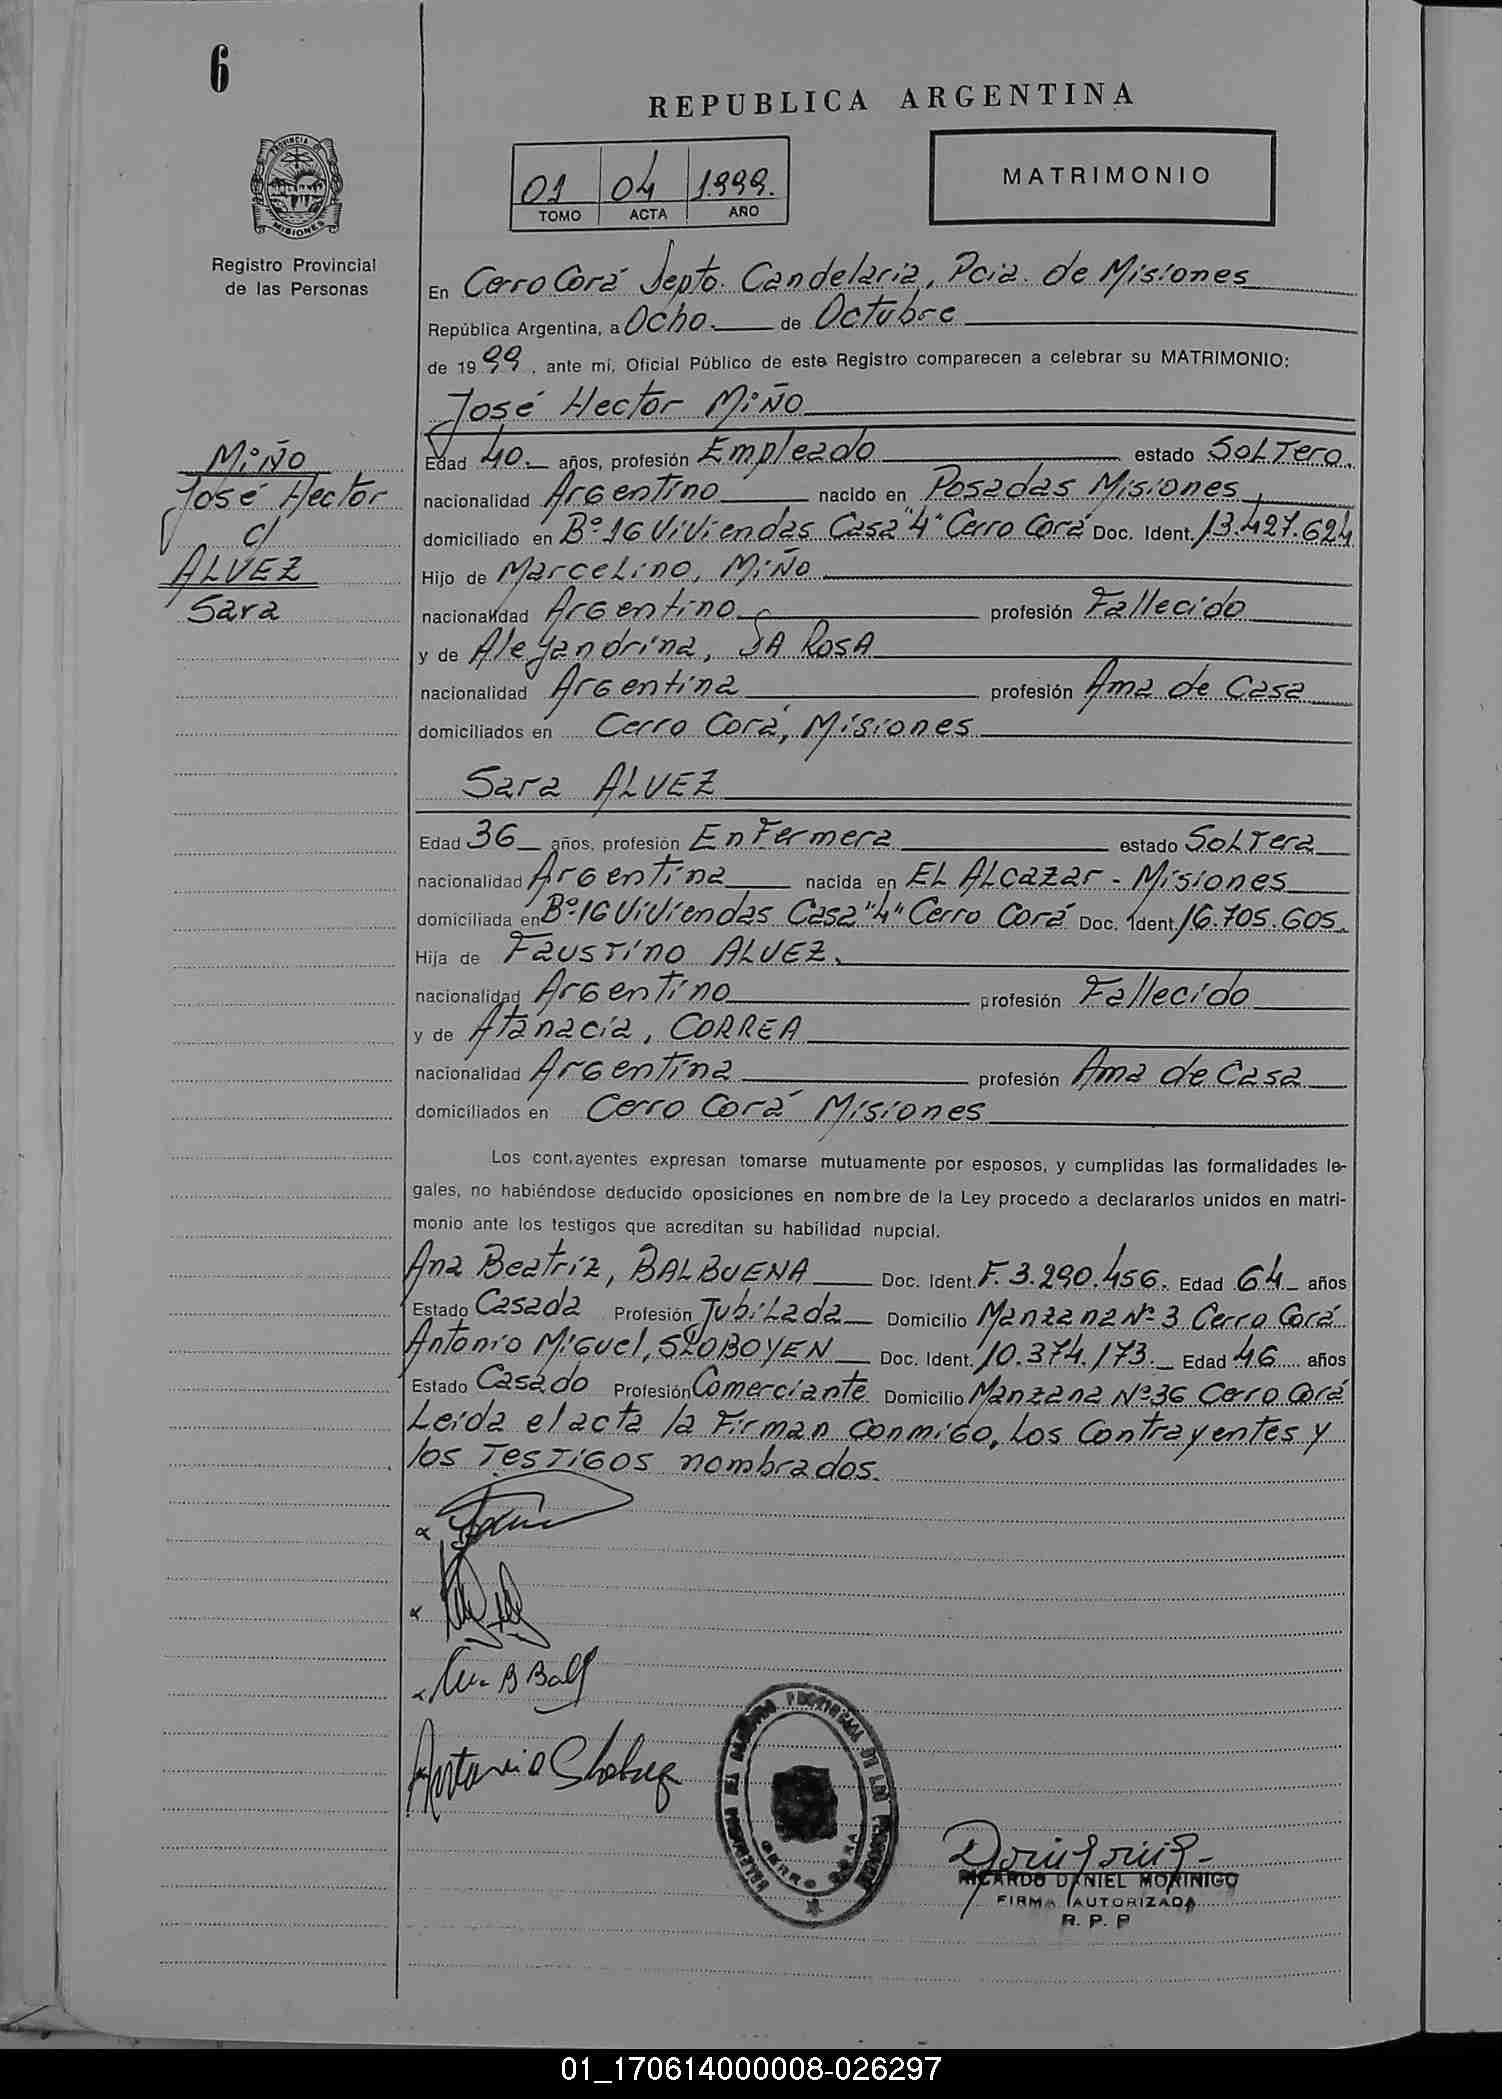 6
REPUBLICA ARGENTINA
01 04 1999.
TOMO ACTA AÑO
MATRIMONIO
PROVINCIA DE
MISIONES
Registro Provincial
de las Personas
En Cerro Corá Depto. Candelaria, Pcia. de Misiones
República Argentina, a Ocho. de Octubre
de 19 99, ante mi, Oficial Público de este Registro comparecen a celebrar su MATRIMONIO:
José Hector MiÑo
MiÑo
José Hector
c/
ALVEZ
Sara
Edad 40. años, profesión Empleado estado SoLTero.
nacionalidad Argentino nacido en Posadas Misiones
domiciliado en Bº 16 ViViendas Casa "4" Cerro Corá Doc. Ident. 13.427.624
Hijo de MarceLino, MiÑo
nacionalidad Argentino profesión Fallecido
y de Aleyandrina, DA RosA
nacionalidad Argentina profesión Ama de Casa
domiciliados en Cerro Corá, Misiones
Sara ALVEZ
Edad 36 años, profesión EnFermera estado SoLTera
nacionalidad Argentina nacida en EL ALcazar - Misiones
domiciliada en Bº 16 ViViendas Casa "4" Cerro Corá Doc. Ident. 16.705.605.
Hija de FausTino ALVEZ.
nacionalidad Argentino profesión Fallecido
y de Atanacia, CORREA
nacionalidad Argentina profesión Ama de Casa
domiciliados en Cerro Corá Misiones
Los cont.ayentes expresan tomarse mutuamente por esposos, y cumplidas las formalidades le-
gales, no habiéndose deducido oposiciones en nombre de la Ley procedo a declararlos unidos en matri-
monio ante los testigos que acreditan su habilidad nupcial.
Ana Beatriz, BALBUENA Doc. Ident. F. 3.290.456. Edad 64 años
Estado Casada Profesión JubiLada Domicilio Manzana Nº 3 Cerro Corá
Antonio Miguel, SLOBOYEN Doc. Ident. 10.374.173. Edad 46 años
Estado Casado Profesión Comerciante Domicilio Manzana Nº 36 Cerro Corá
Leida el acta la Firman conmigo, Los Contrayentes y
los TesTigos nombrados.
Antonio
CERRO CORA
RICARDO DANIEL MORINIGO
FIRMA AUTORIZADA
R. P. P
01_170614000008-026297